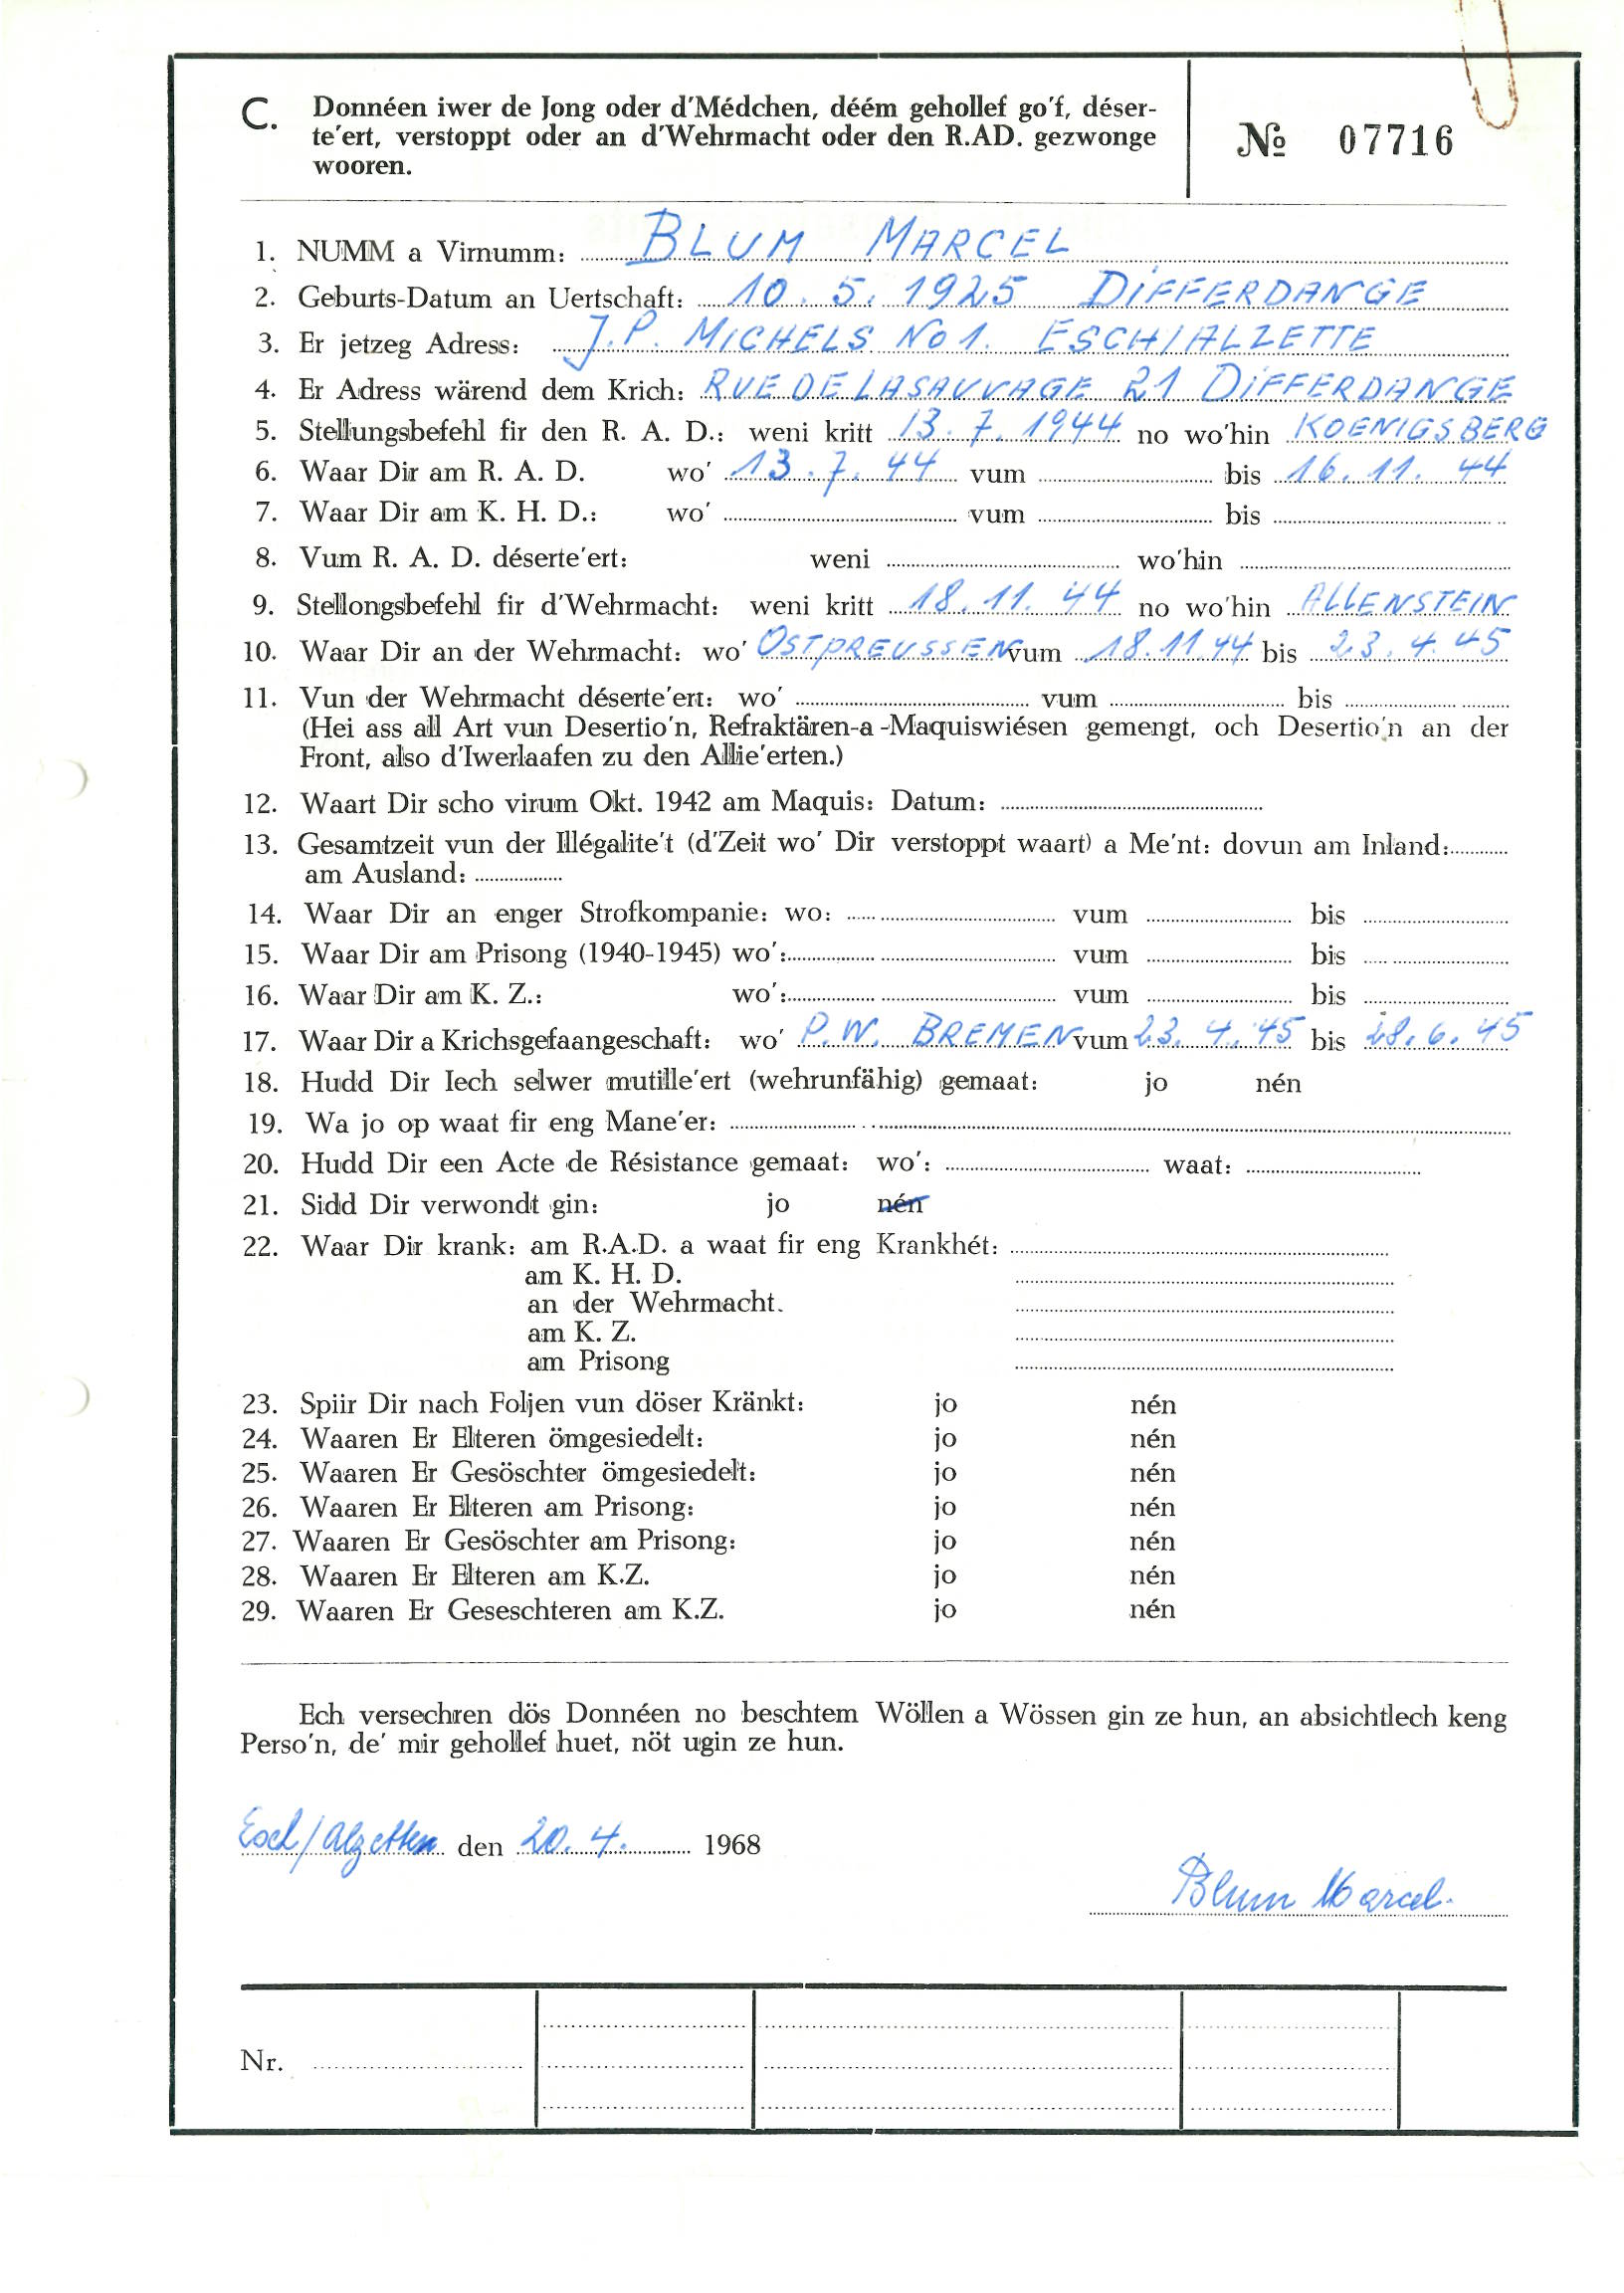 C. Donnéen iwer de Jong oder d'Médchen, déém gehollef go'f, déser-
te'ert, verstoppt oder an d'Wehrmacht oder den R.AD. gezwonge
wooren.
№ 07716
1. NUMM a Virnumm: BLUM MARCEL
2. Geburts-Datum an Uertschaft: 10. 5. 1925 DIFFERDANGE
3. Er jetzeg Adress: J.P. MICHELS No 1. ESCH/ALZETTE
4. Er Adress wärend dem Krich: RUE DE LASAUVAGE 21 DIFFERDANGE
5. Stellungsbefehl fir den R. A. D.: weni kritt 13. 7. 1944 no wo'hin KOENIGSBERG
6. Waar Dir am R. A. D. wo' 13. 7. 44 vum bis 16. 11. 44
7. Waar Dir am K. H. D.: wo' vum bis
8. Vum R. A. D. déserte'ert: weni wo'hin
9. Stellongsbefehl fir d'Wehrmacht: weni kritt 18. 11. 44 no wo'hin ALLENSTEIN
10. Waar Dir an der Wehrmacht: wo' OSTPREUSSEN vum 18.11.44 bis 23. 4. 45
11. Vun der Wehrmacht déserte'ert: wo' vum bis
(Hei ass all Art vun Desertio'n, Refraktären-a-Maquiswiésen gemengt, och Desertio'n an der
Front, also d'Iwerlaafen zu den Allie'erten.)
12. Waart Dir scho virum Okt. 1942 am Maquis: Datum:
13. Gesamtzeit vun der Illégalite't (d'Zeit wo' Dir verstoppt waart) a Me'nt: dovun am Inland:
am Ausland:
14. Waar Dir an enger Strofkompanie: wo: vum bis
15. Waar Dir am Prisong (1940-1945) wo': vum bis
16. Waar Dir am K. Z.: wo': vum bis
17. Waar Dir a Krichsgefaangeschaft: wo' P.W. BREMEN vum 23. 4. 45 bis 28. 6. 45
18. Hudd Dir Iech selwer mutille'ert (wehrunfähig) gemaat: jo nén
19. Wa jo op waat fir eng Mane'er:
20. Hudd Dir een Acte de Résistance gemaat: wo': waat:
21. Sidd Dir verwondt gin: jo nén
22. Waar Dir krank: am R.A.D. a waat fir eng Krankhét:
am K. H. D.
an der Wehrmacht.
am K. Z.
am Prisong
23. Spiir Dir nach Foljen vun döser Kränkt: jo nén
24. Waaren Er Elteren ömgesiedelt: jo nén
25. Waaren Er Gesöschter ömgesiedelt: jo nén
26. Waaren Er Elteren am Prisong: jo nén
27. Waaren Er Gesöschter am Prisong: jo nén
28. Waaren Er Elteren am K.Z. jo nén
29. Waaren Er Geseschteren am K.Z. jo nén
Ech versechren dös Donnéen no beschtem Wöllen a Wössen gin ze hun, an absichtlech keng
Perso'n, de' mir gehollef huet, nöt ugin ze hun.
Esch/Alzette den 20. 4. 1968
Blum Marcel.
Nr.